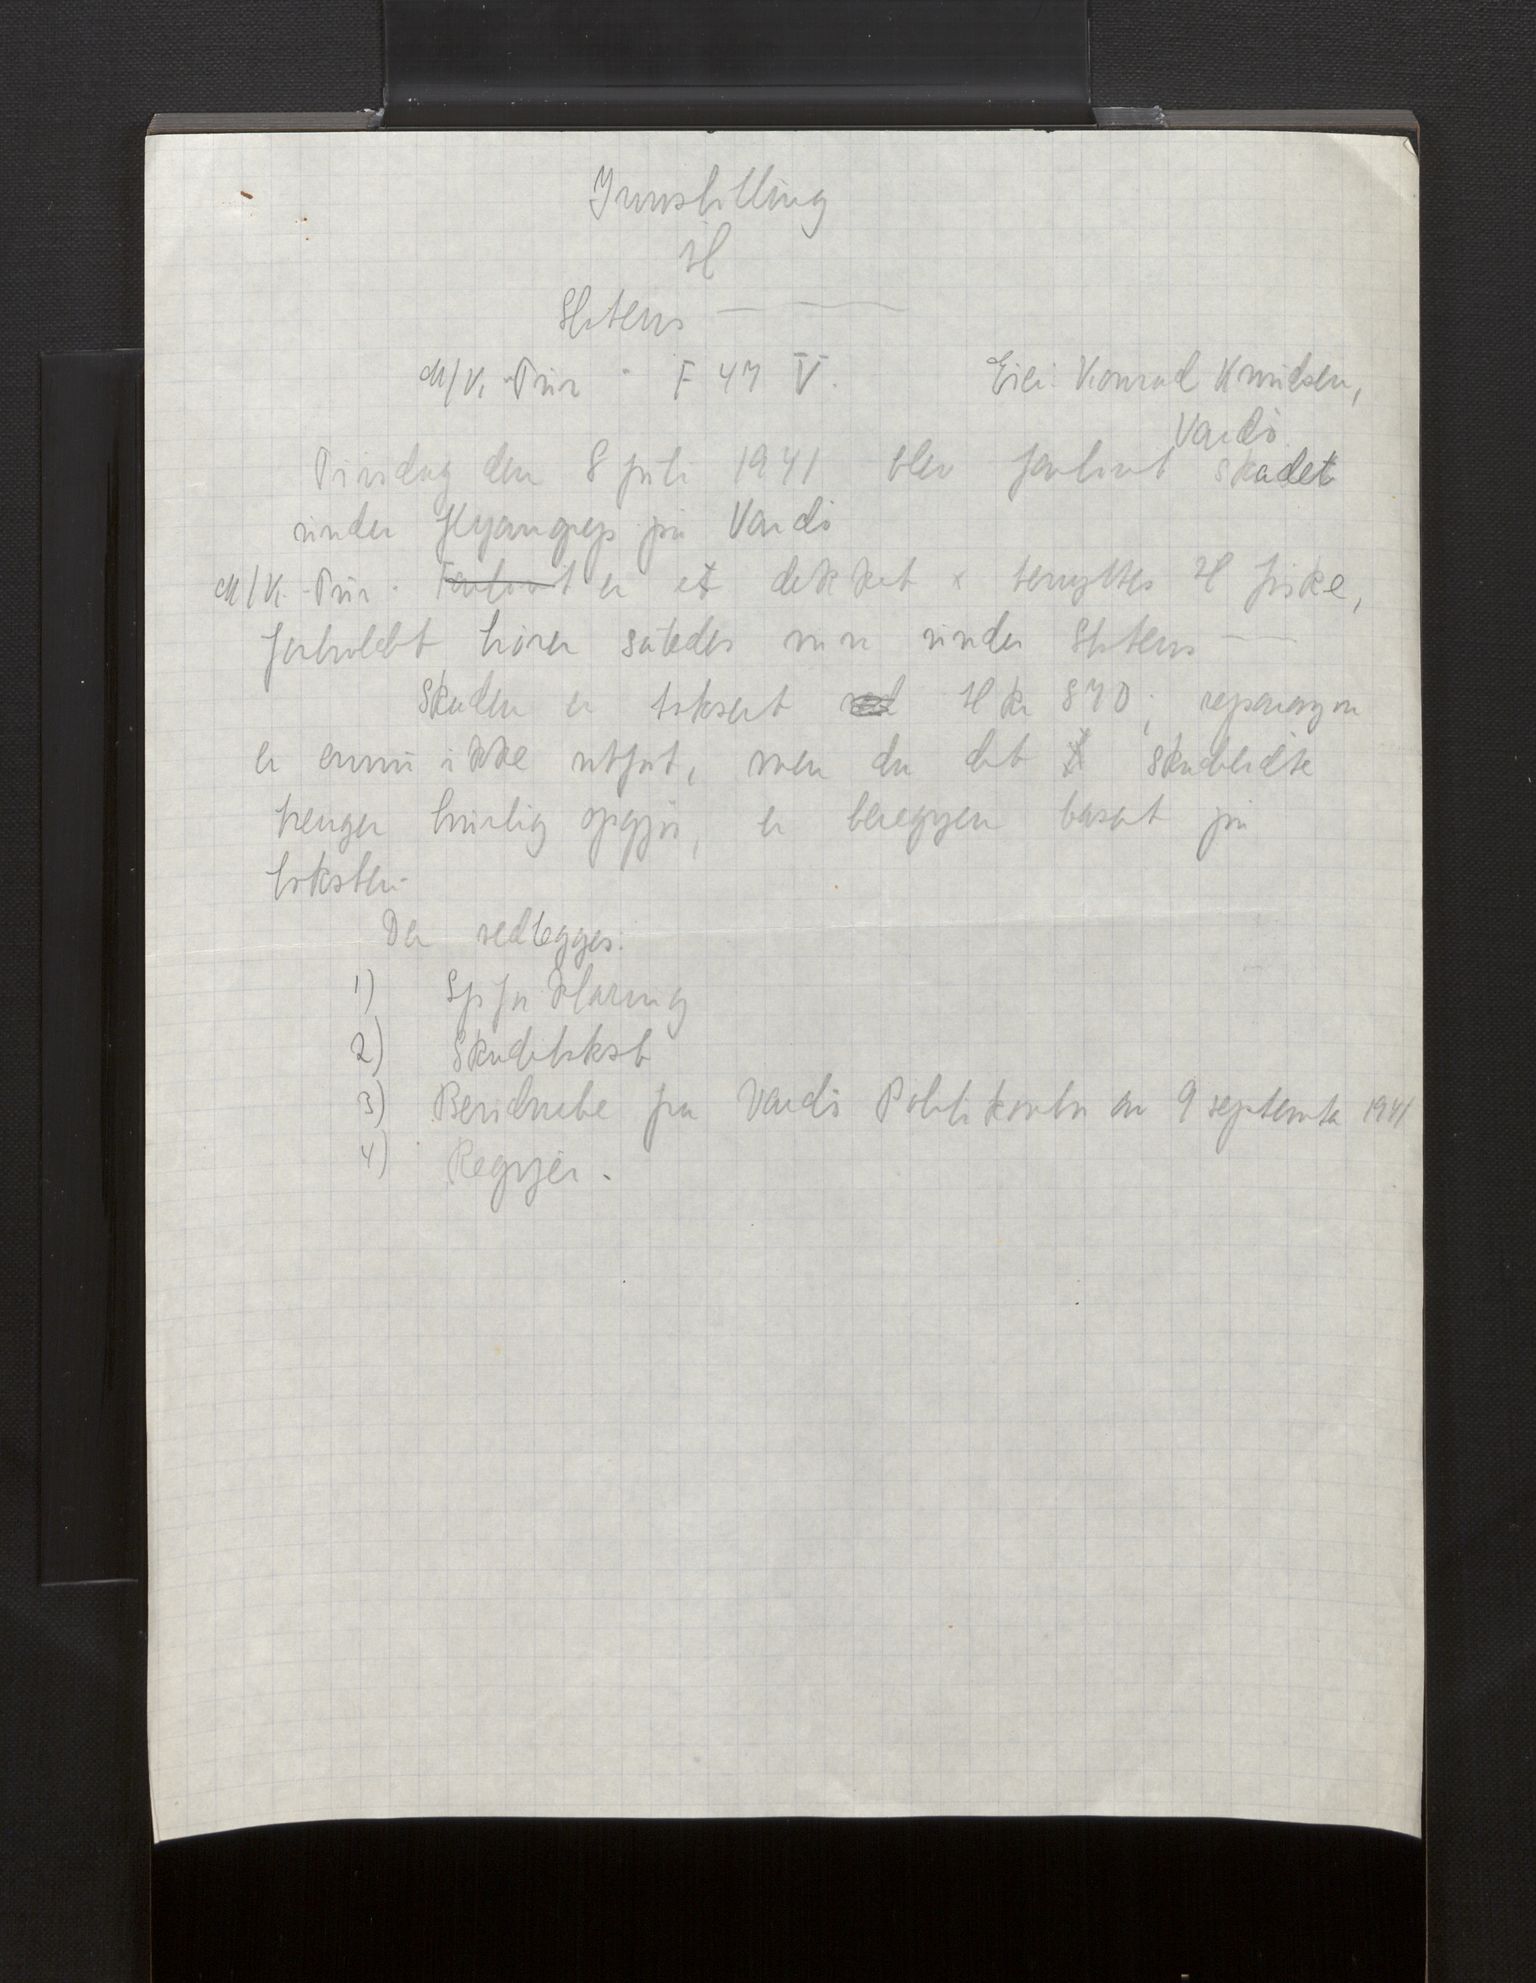 Innstilling
til
Statens —
M/K. "Tur" F 47 V. Eier: Konrad Knudsen,
Vardö
Tirsdag den 8 juli 1941 blev fartöiet skadet
under flyangrep på Vardö
M/K. "Tur" Fartöiet er et dekket & benyttes til fiske,
forholdet hörer således inn under Statens —
Skaden er taksert til kr 870, reparasjon
er ennu ikke utfört, men da det skadelidte
trenger hurtig opgjör, er beregnen basert på
taksten.
Der vedlegges:
1) Sjöforklaring
2) Skadetakst
3) Bekreftelse fra Vardö Politikontor av 9 september 1941
4)